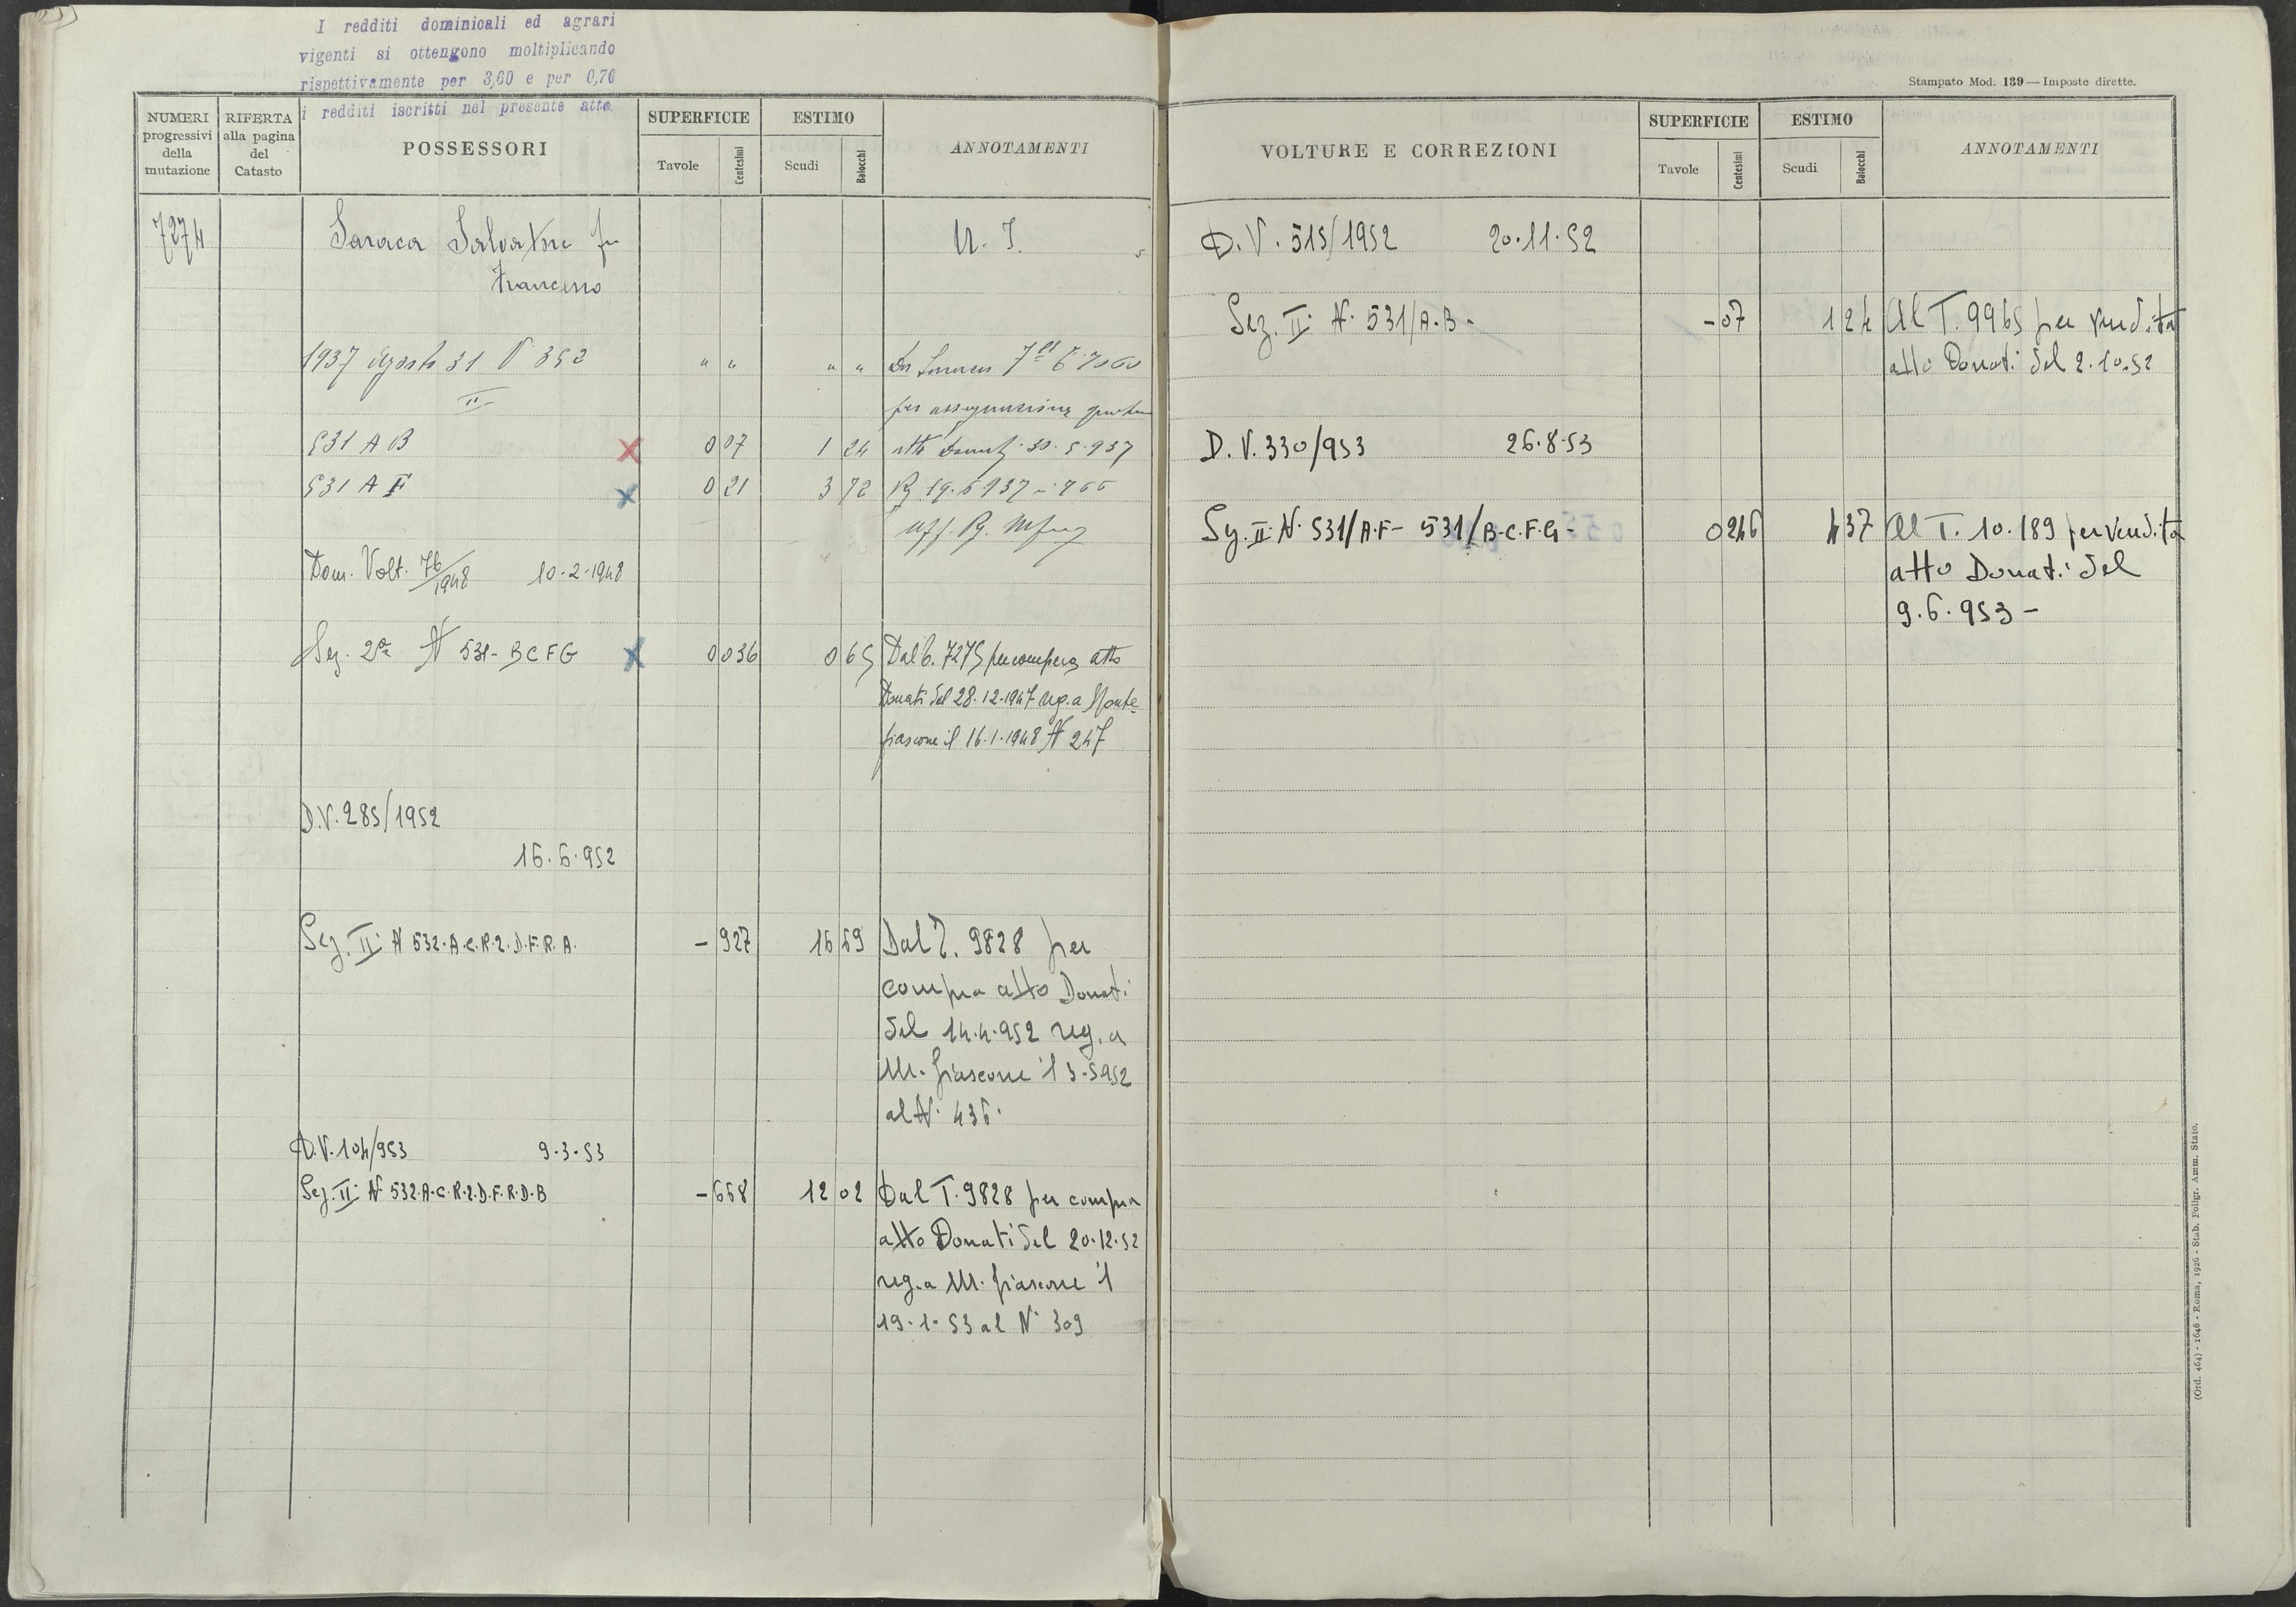 I redditi dominicali ed agrari
vigenti si ottengono moltiplicando
rispettivamente per 3,60 e per 0,70
i redditi iscritti nel presente atto.
NUMERI progressivi della mutazione
RIFERTA alla pagina del Catasto
POSSESSORI
SUPERFICIE
Tavole
Centesimi
ESTIMO
Scudi
Baiocchi
ANNOTAMENTI
7274 Saraca Salvatore fu U. I.
Francesco
1937 Agosto 31 V 352 " " " " 7060
II per assegnazione
531 A B X 0 07 1 24 atto Donati 30.5.937
531 A F X 0 21 3 72 Rg 19.6.937
Uff. Rg.
Dom. Volt. 76/1948 10-2-1948
Sez. 2ª N 531- B C F G X 0 036 0 65 Dal 7275 per compera atto
Donati del 28.12.1947 reg. a Monte=
fiascone il 16.1.1948 N 247
D.V. 285/1952
16.6.952
Sez. II N 532.A.C.R.2.D.F.R.A. - 927 16 69 Dal T. 9828 per
compra atto Donati
del 14.4.952 reg. a
M. fiascone il 3.5.952
al N. 436.
D.V. 104/953 9.3.53
Sez. II N 532.A.C.R.2.D.F.R.D.B - 668 12 02 Dal T. 9828 per compra
atto Donati del 20.12.52
reg. a M. fiascone il
19.1.53 al N 309
Stampato Mod. 139 — Imposte dirette.
VOLTURE E CORREZIONI
SUPERFICIE
Tavole
Centesimi
ESTIMO
Scudi
Baiocchi
ANNOTAMENTI
D.V. 515/1952 20.11.52
Sez. II N. 531/A.B - - 07 1 24 Al T. 9965 per vendita
atto Donati del 2.10.52
D.V. 330/953 26.8.53
Sez. II N. 531/A.F - 531/B.C.F.G - 0246 4 37 Al T. 10.189 per vendita
atto Donati del
9.6.953 -
(Ord. 464) - 1646 - Roma, 1926 - Stab. Poligr. Amm. Stato.